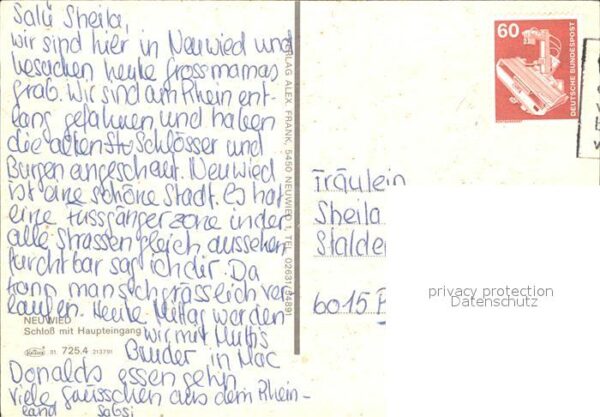 Salü Sheila,
wir sind hier in Neuwied und
besuchen heute grossmamas
grab. Wir sind am Rhein ent-
lang gefahren und haben
die alten Schlösser und
Burgen angeschaut. Neuwied
ist eine schöne Stadt. Es hat
eine Fussgängerzone in der
alle Strassen gleich aussehen
furchtbar sag ich dir. Da
kann man sich grässlich ver-
laufen. Heute Mittag werden
wir mit Muttis
Bruder in Mac
Donalds essen gehn
Viele Grüsschen aus dem Rhein-
land
NEUWIED
Schloß mit Haupteingang
31. 725.4 213791
VERLAG ALEX. FRANK, 5450 NEUWIED 1, TEL. 02631/24891
60
DEUTSCHE BUNDESPOST
Fräulein
Sheila
Stalde
6015
privacy protection
Datenschutz